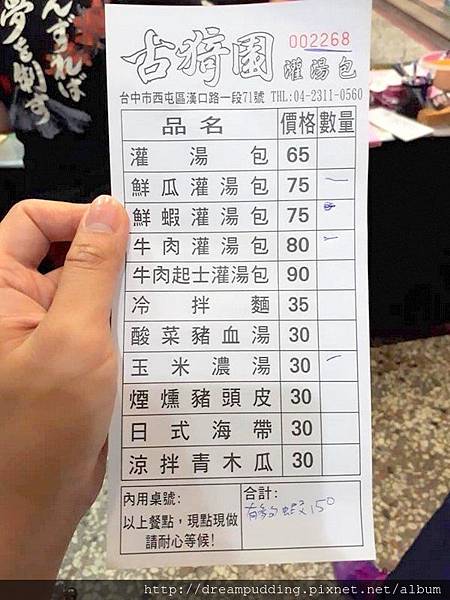 んずれば
夢を倒す
古猗園 灌湯包
002268
台中市西屯區漢口路一段71號 THL:04-2311-0560
品名 價格 數量
灌湯包 65
鮮瓜灌湯包 75 一
鮮蝦灌湯包 75
牛肉灌湯包 80 一
牛肉起士灌湯包 90
冷拌麵 35
酸菜豬血湯 30
玉米濃湯 30 一
煙燻豬頭皮 30
日式海帶 30
涼拌青木瓜 30
內用桌號:
以上餐點，現點現做
請耐心等候!
合計:
150
http://dreampudding.pixnet.net/album